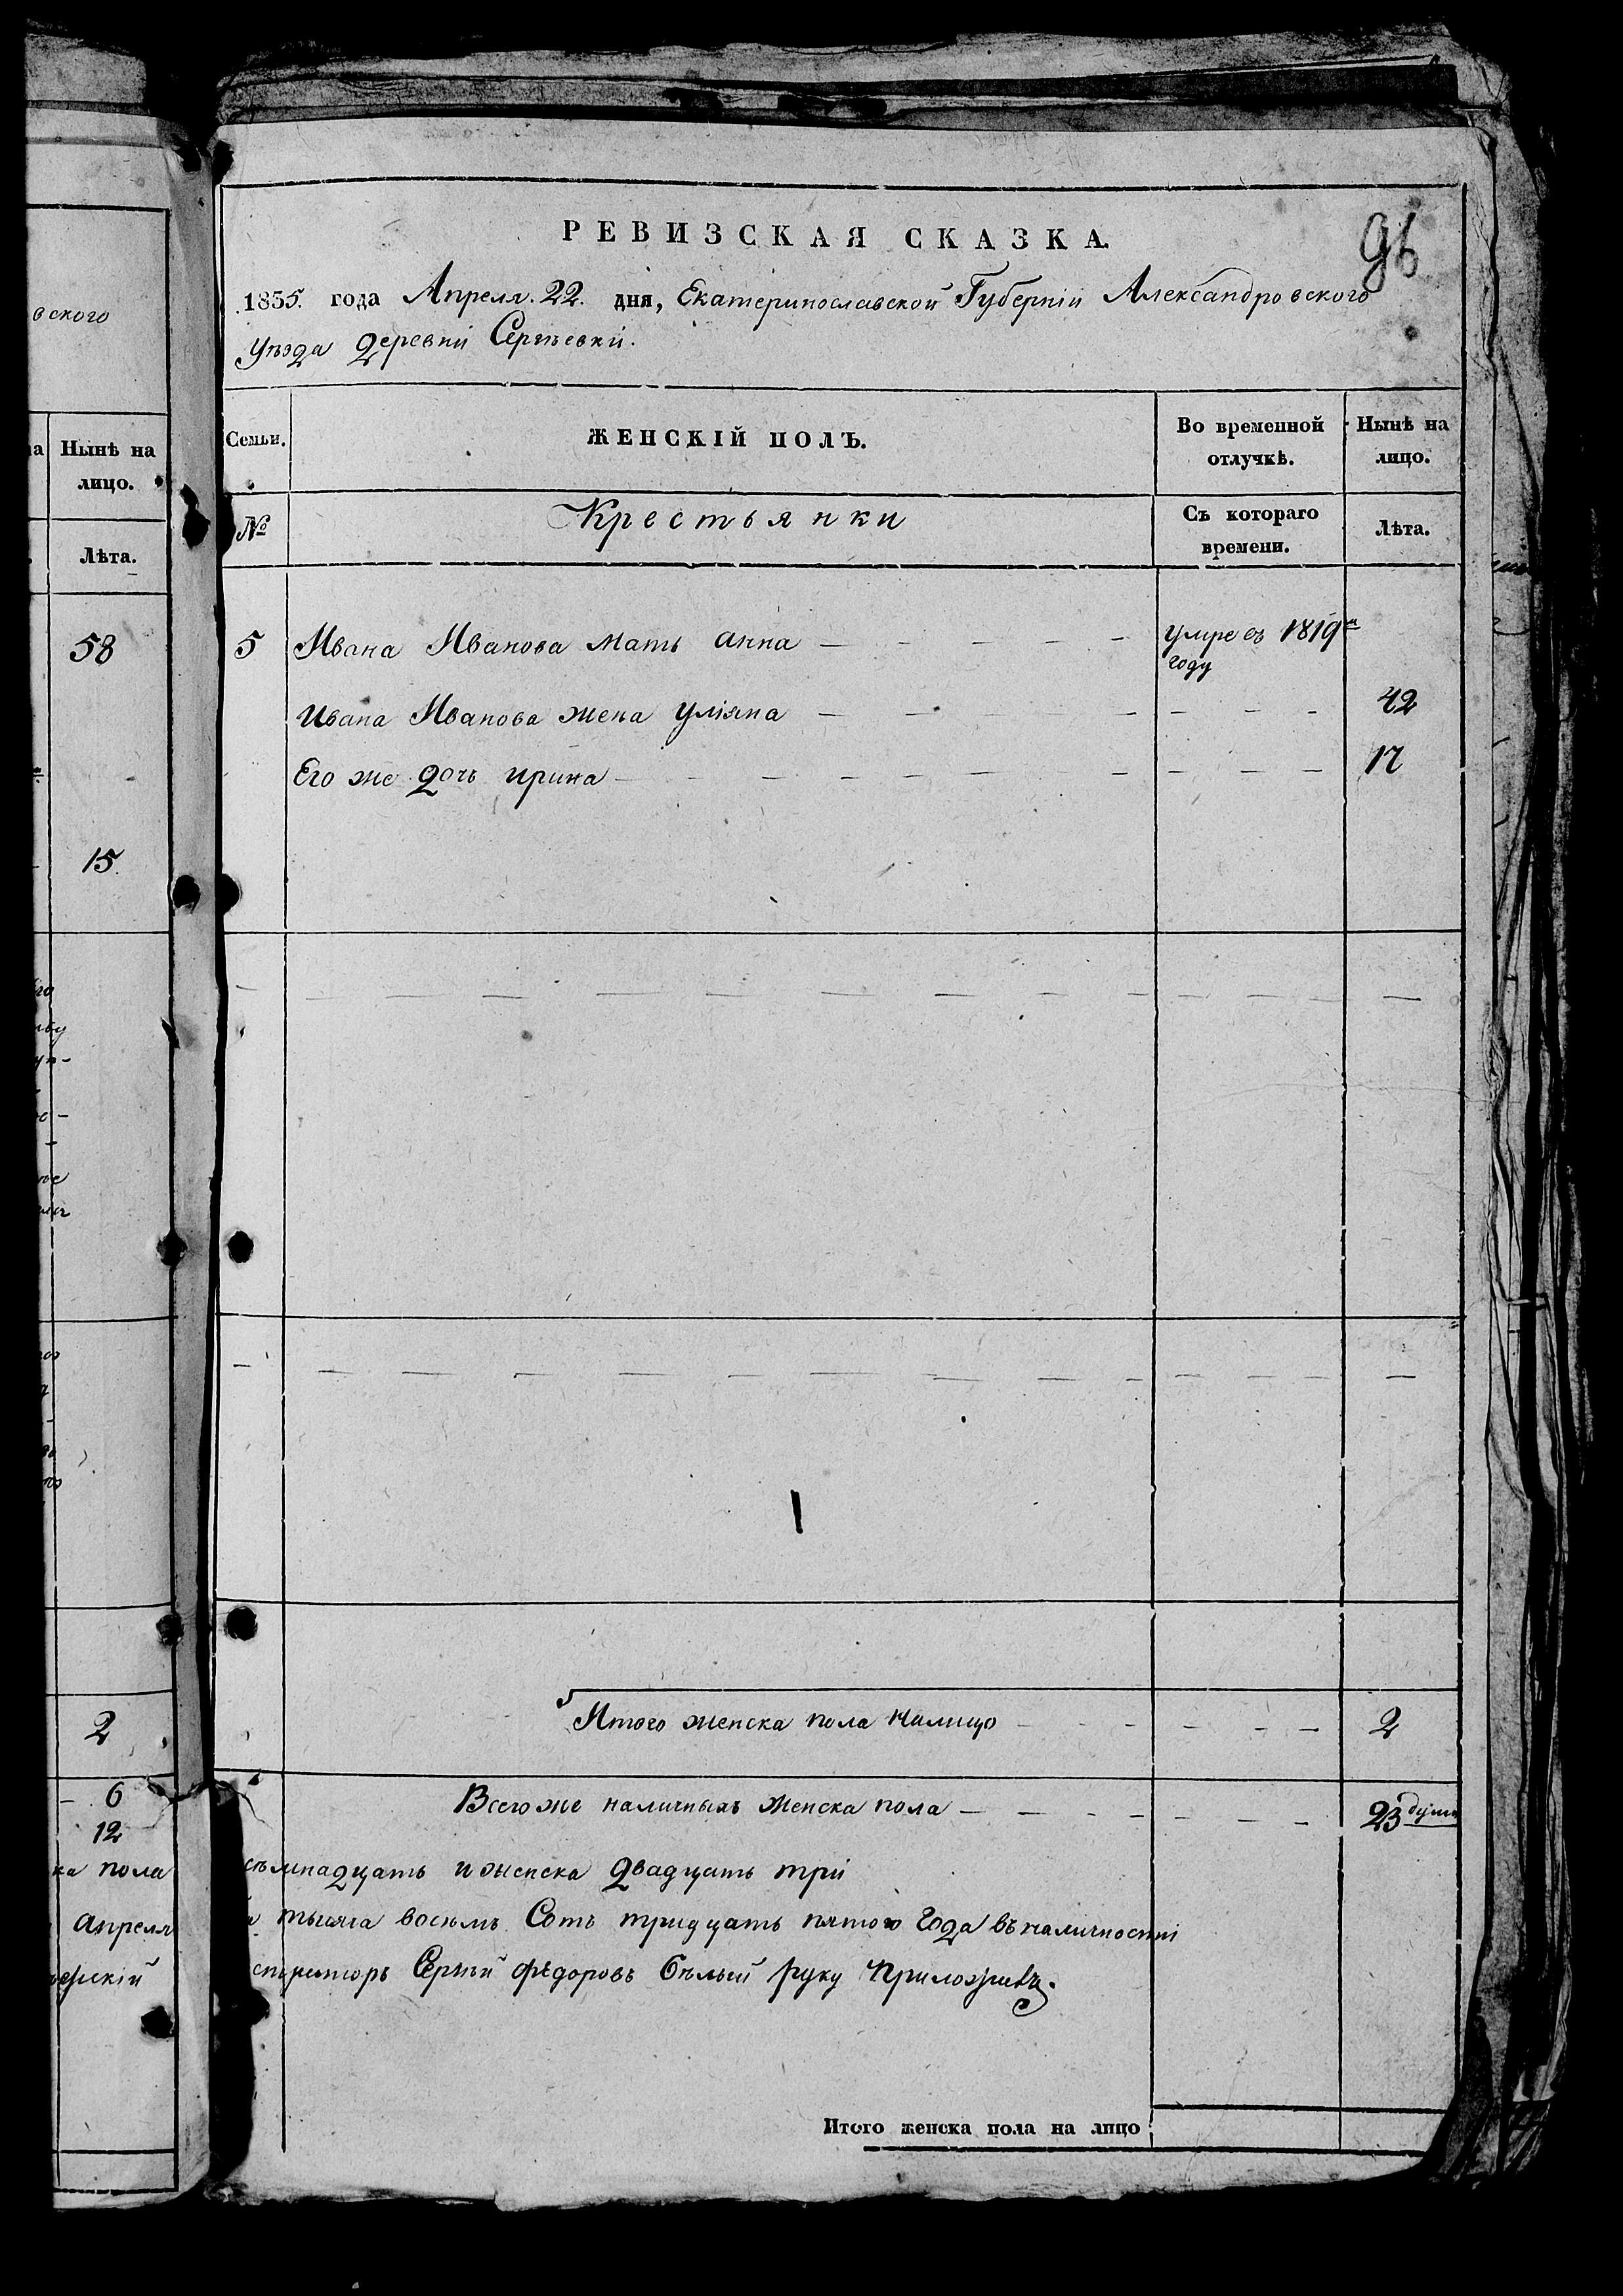 вского
Нынѣ на
лицо.
Лѣта.
58
15.
2
6
12
ка пола
апреля
РЕВИЗСКАЯ СКАЗКА.
96
1835. года Апреля. 22. дня, Екатеринославской Губерніи Александровского
Уѣзда деревни Сергѣевки.
Семьи.
ЖЕНСКІЙ ПОЛЪ.
Во временной
отлучкѣ.
Нынѣ на
лицо.
№
Крестьянки
Съ котораго
времени.
Лѣта.
5 Ивана Иванова мать анна — — — — — умре въ 1819м
году
Ивана Иванова жена уліяна — — — — — — — 42
Его же дочь ирина — — — — — — — — — 17
Итого женска пола налицо — — — — — — 2
Всего же наличныхъ женска пола — — — — — — — 23 душ
семнадцать и женска двадцать три
тысяча восемь Сотъ тридцать пятого года въ наличности
Сергѣй Ѳедоровъ Бѣлый руку приложилъ.
Итого женска пола на лицо